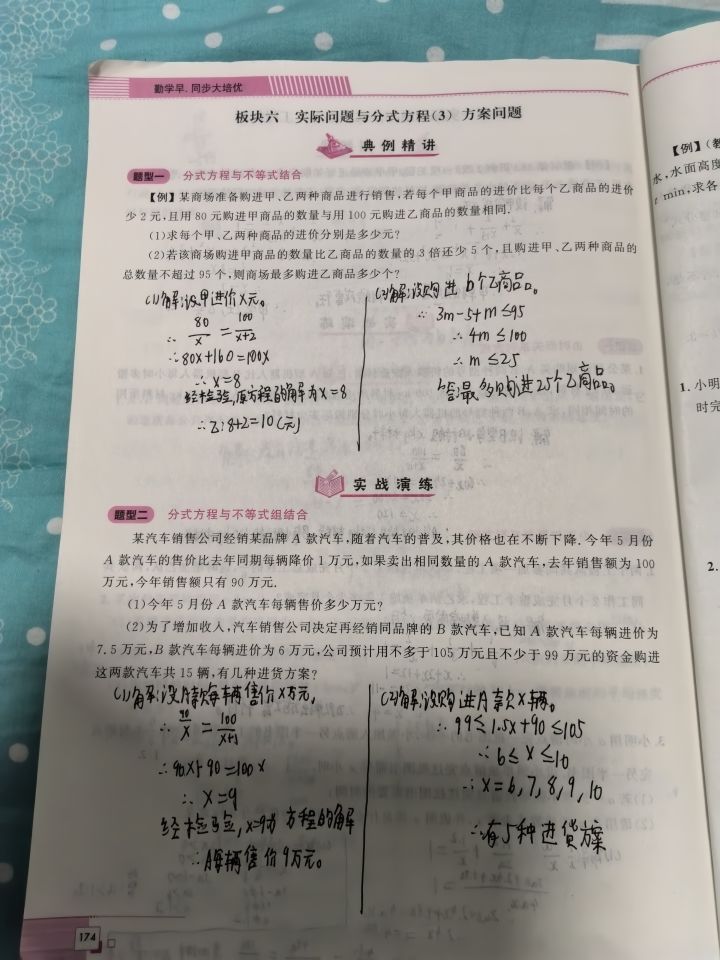 勤学早.同步大培优
板块六 实际问题与分式方程(3) 方案问题
典例精讲
题型一 分式方程与不等式结合
【例】某商场准备购进甲、乙两种商品进行销售,若每个甲商品的进价比每个乙商品的进价
少2元,且用80元购进甲商品的数量与用100元购进乙商品的数量相同.
(1)求每个甲、乙两种商品的进价分别是多少元?
(2)若该商场购进甲商品的数量比乙商品的数量的3倍还少5个,且购进甲、乙两种商品的
总数量不超过95个,则商场最多购进乙商品多少个?
(1)解:设甲进价x元。
∴ 80/x = 100/x+2
∴80x+160=100x
∴x=8
经检验,原方程的解为x=8
∴乙:8+2=10(元)
(2)解:设购进b个乙商品。
∴ 3m-5+m≤95
∴4m≤100
∴m≤25
答:最多购进25个乙商品。
实战演练
题型二 分式方程与不等式组结合
某汽车销售公司经销某品牌A款汽车,随着汽车的普及,其价格也在不断下降.今年5月份
A款汽车的售价比去年同期每辆降价1万元,如果卖出相同数量的A款汽车,去年销售额为100
万元,今年销售额只有90万元.
(1)今年5月份A款汽车每辆售价多少万元?
(2)为了增加收入,汽车销售公司决定再经销同品牌的B款汽车,已知A款汽车每辆进价为
7.5万元,B款汽车每辆进价为6万元,公司预计用不多于105万元且不少于99万元的资金购进
这两款汽车共15辆,有几种进货方案?
(1)解:设A款每辆售价x万元,
∴ 90/x = 100/x+1
∴90x+90=100x
∴x=9
经检验,x=9为方程的解
∴A每辆售价9万元。
(2)解:设购进A款x辆。
∴99≤1.5x+90≤105
∴6≤x≤10
∴x=6,7,8,9,10
∴有5种进货方案
174
【例】(教
水,水面高度
t min,求各
1.小明
时完
2.